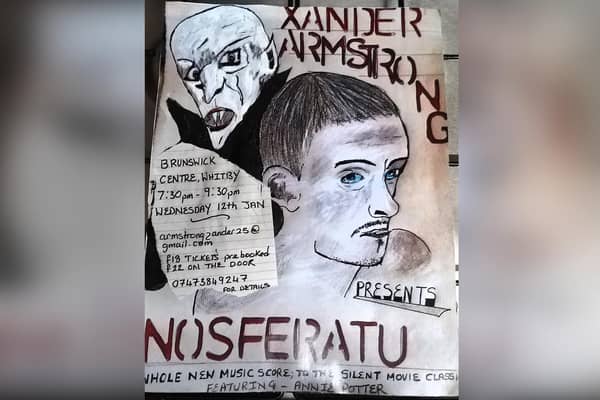 XANDER
ARMSTRONG
BRUNSWICK
CENTRE, WHITBY
7:30pm - 9:30pm
WEDNESDAY 12TH JAN
armstrongzander25@
gmail.com
£18 TICKETS prebooked
£22 ON THE DOOR
07473849247
FOR DETAILS
PRESENTS
NOSFERATU
WHOLE NEW MUSIC SCORE; TO THE SILENT MOVIE CLASSI
FEATURING - ANNIE POTTER